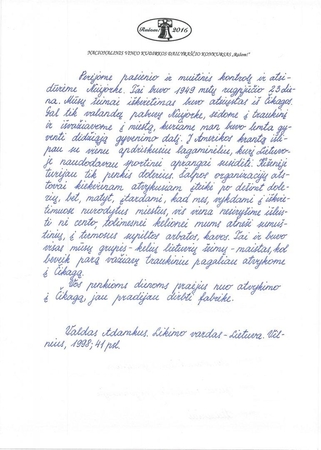 Rašom! 2016
NACIONALINIS VINCO KUDIRKOS DAILYRAŠČIO KONKURSAS „Rašom!"
Perėjome pasienio ir muitinės kontrolę ir atsi-
dūrėme Niujorke. Tai buvo 1949 metų rugpjūčio 23 die-
na. Mūsų šeimai iškvietimas buvo atsiųstas iš Čikagos.
Gal tik valandą pabuvę Niujorke, sėdome į traukinį
ir išvažiavome į miestą, kuriame man buvo lemta gy-
venti didžiąją gyvenimo dalį. Į Amerikos krantą išli-
pau su vienu apdriskusiu lagaminėliu, kurį Lietuvo-
je naudodavau sportinei aprangai susidėti. Kišenėje
turėjau tik penkis dolerius. Šalpos organizacijų ats-
tovai kiekvienam atvykusiam įteikė po dešimt dole-
rių, bet, matyt, įtardami, kad mes, vykdami į iškvie-
timuose nurodytus miestus, vis viena nesiryšime išleis-
ti nė cento, tolimesnei kelionei mums atnešė sumuš-
tinių, į termosus supiltos arbatos, kavos. Tai ir buvo
visas mūsų grupės - kelių lietuvių šeimų - maistas, kol
beveik parą važiavę traukiniu pagaliau atvykome
į Čikagą.
Vos penkioms dienoms praėjus nuo atvykimo
į Čikagą, jau pradėjau dirbti fabrike.
Valdas Adamkus. Likimo vardas - Lietuva. Vil-
nius, 1998; 41 psl.